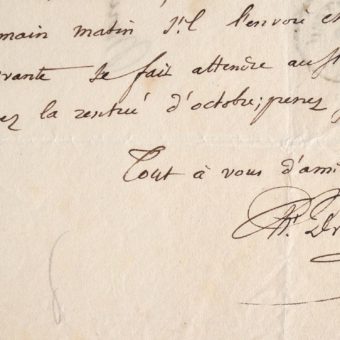 main matin s'il l'envoie
vante se fait attendre
la rentrée d'octobre; penez
Tout à vous d'ami